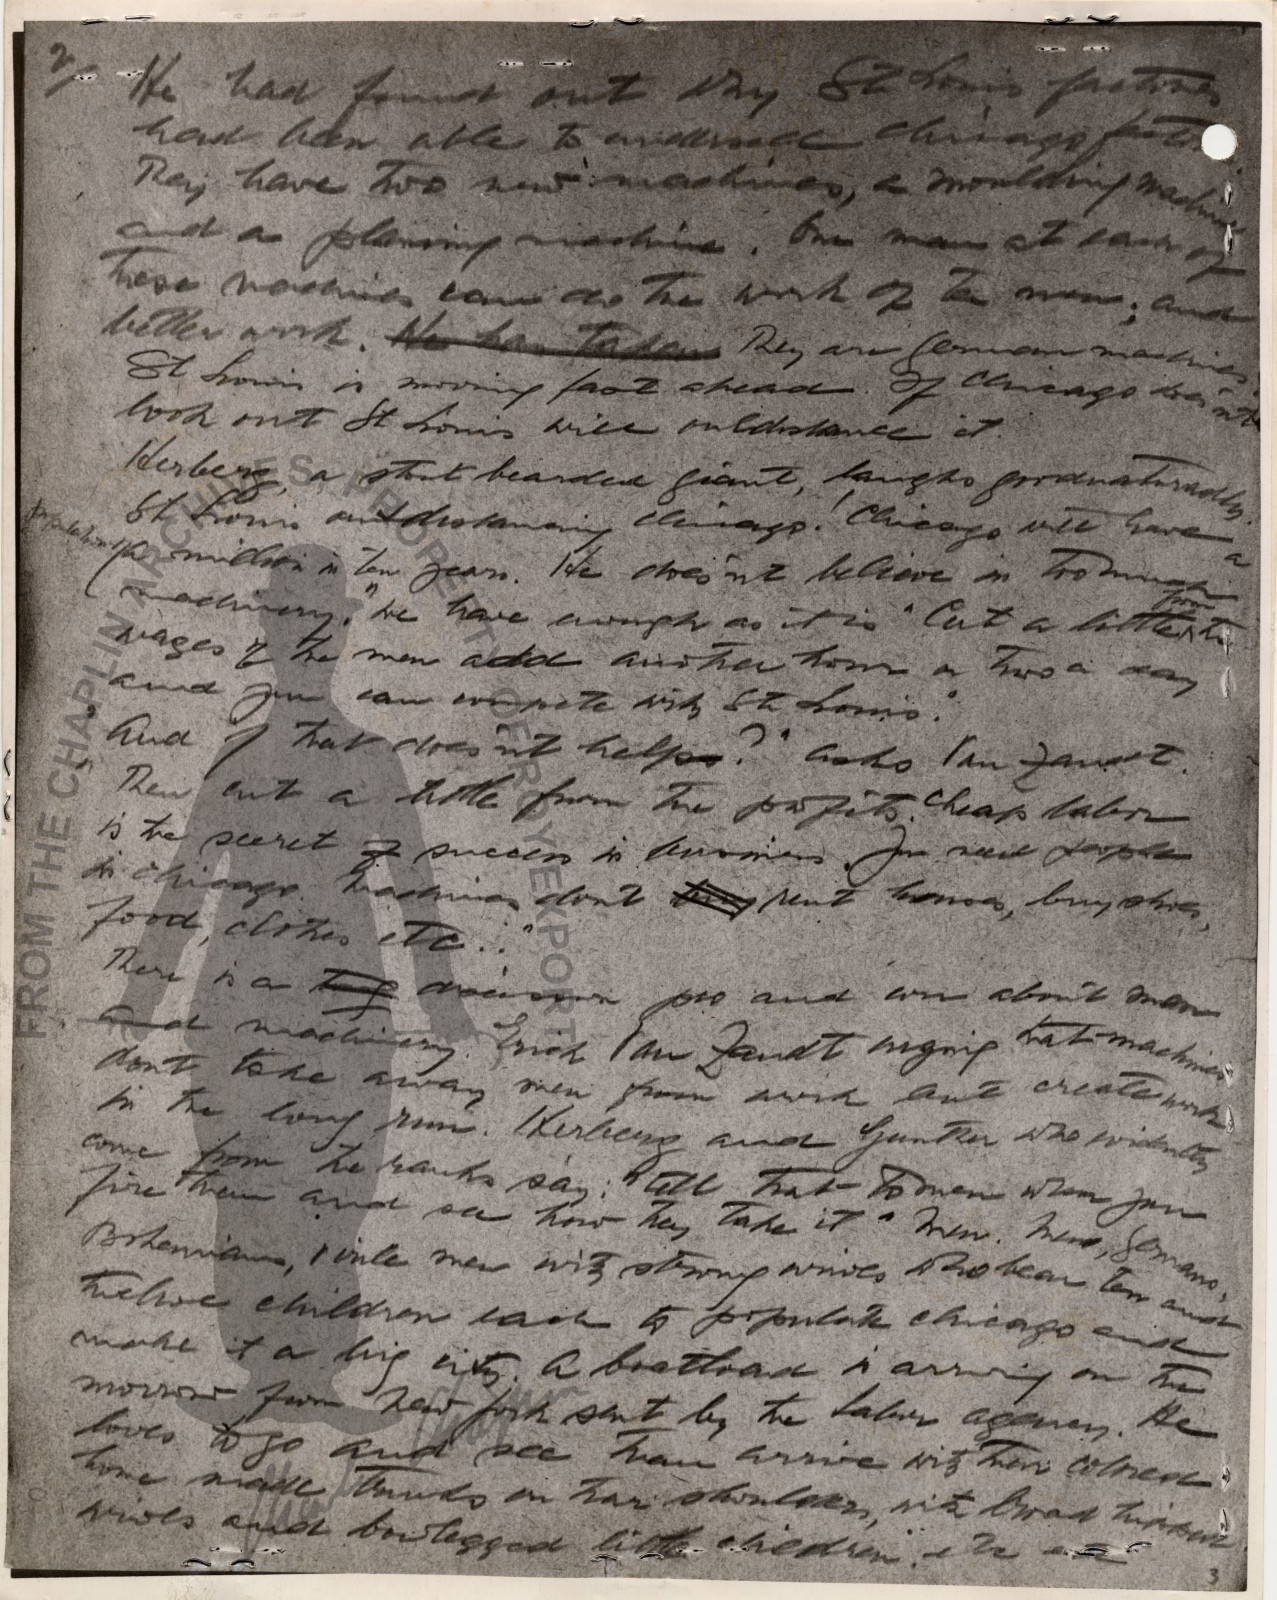 2/
He had found out why St Louis factories
had been able to undersell Chicago
They have two new machines, a moulding machine
and a planing machine. One man at each of
these machines can do the work of ten men; and
better work. He has taken They are German machines.
St Louis is moving fast ahead. If Chicago does'nt
look out St Louis will outdistance it.
Herberg, a stout bearded giant, laughs goodnaturedly.
St Louis outdistancing Chicago! Chicago will have a
population
million in ten years. He does'nt believe in too much
machinery. "We have enough as it is" Cut a little from the
wages of the men add another hour or two a day
and you can compete with St Louis."
"And if that does'nt help?" asks Van Zandt.
"Then cut a little from the profits. Cheap labor
is the secret of success in business. You need people
in Chicago. Machines dont rent houses, buy shoes,
food, clothes etc..."
There is a discussion pro and con about men
and machinery. Erich Van Zandt urging that machines
dont take away men from work but create work
in the long run. Herberg and Gunther who evidently
come from the ranks say: "Tell that to men when you
fire them and see how they take it" Men. Men, Germans,
Bohemians, virile men with strong wives who bear ten and
twelve children each to populate Chicago and
make it a big city. A boatload is arriving on the
morrow from New York sent by the labor agency. He
loves to go and see them arrive with their colored
home made trunks on their shoulders, with broad hipped
wives and bowlegged little children. etc etc
3
FROM THE CHAPLIN ARCHIVES. PROPERTY OF ROY EXPORT